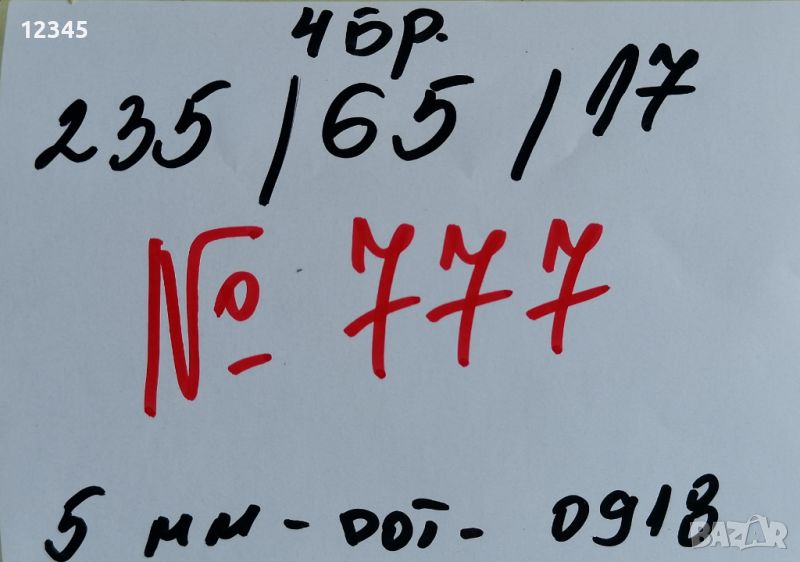 12345
4 бр.
235 / 65 / 17
№ 777
5 мм - DOT - 0918
BAZAR